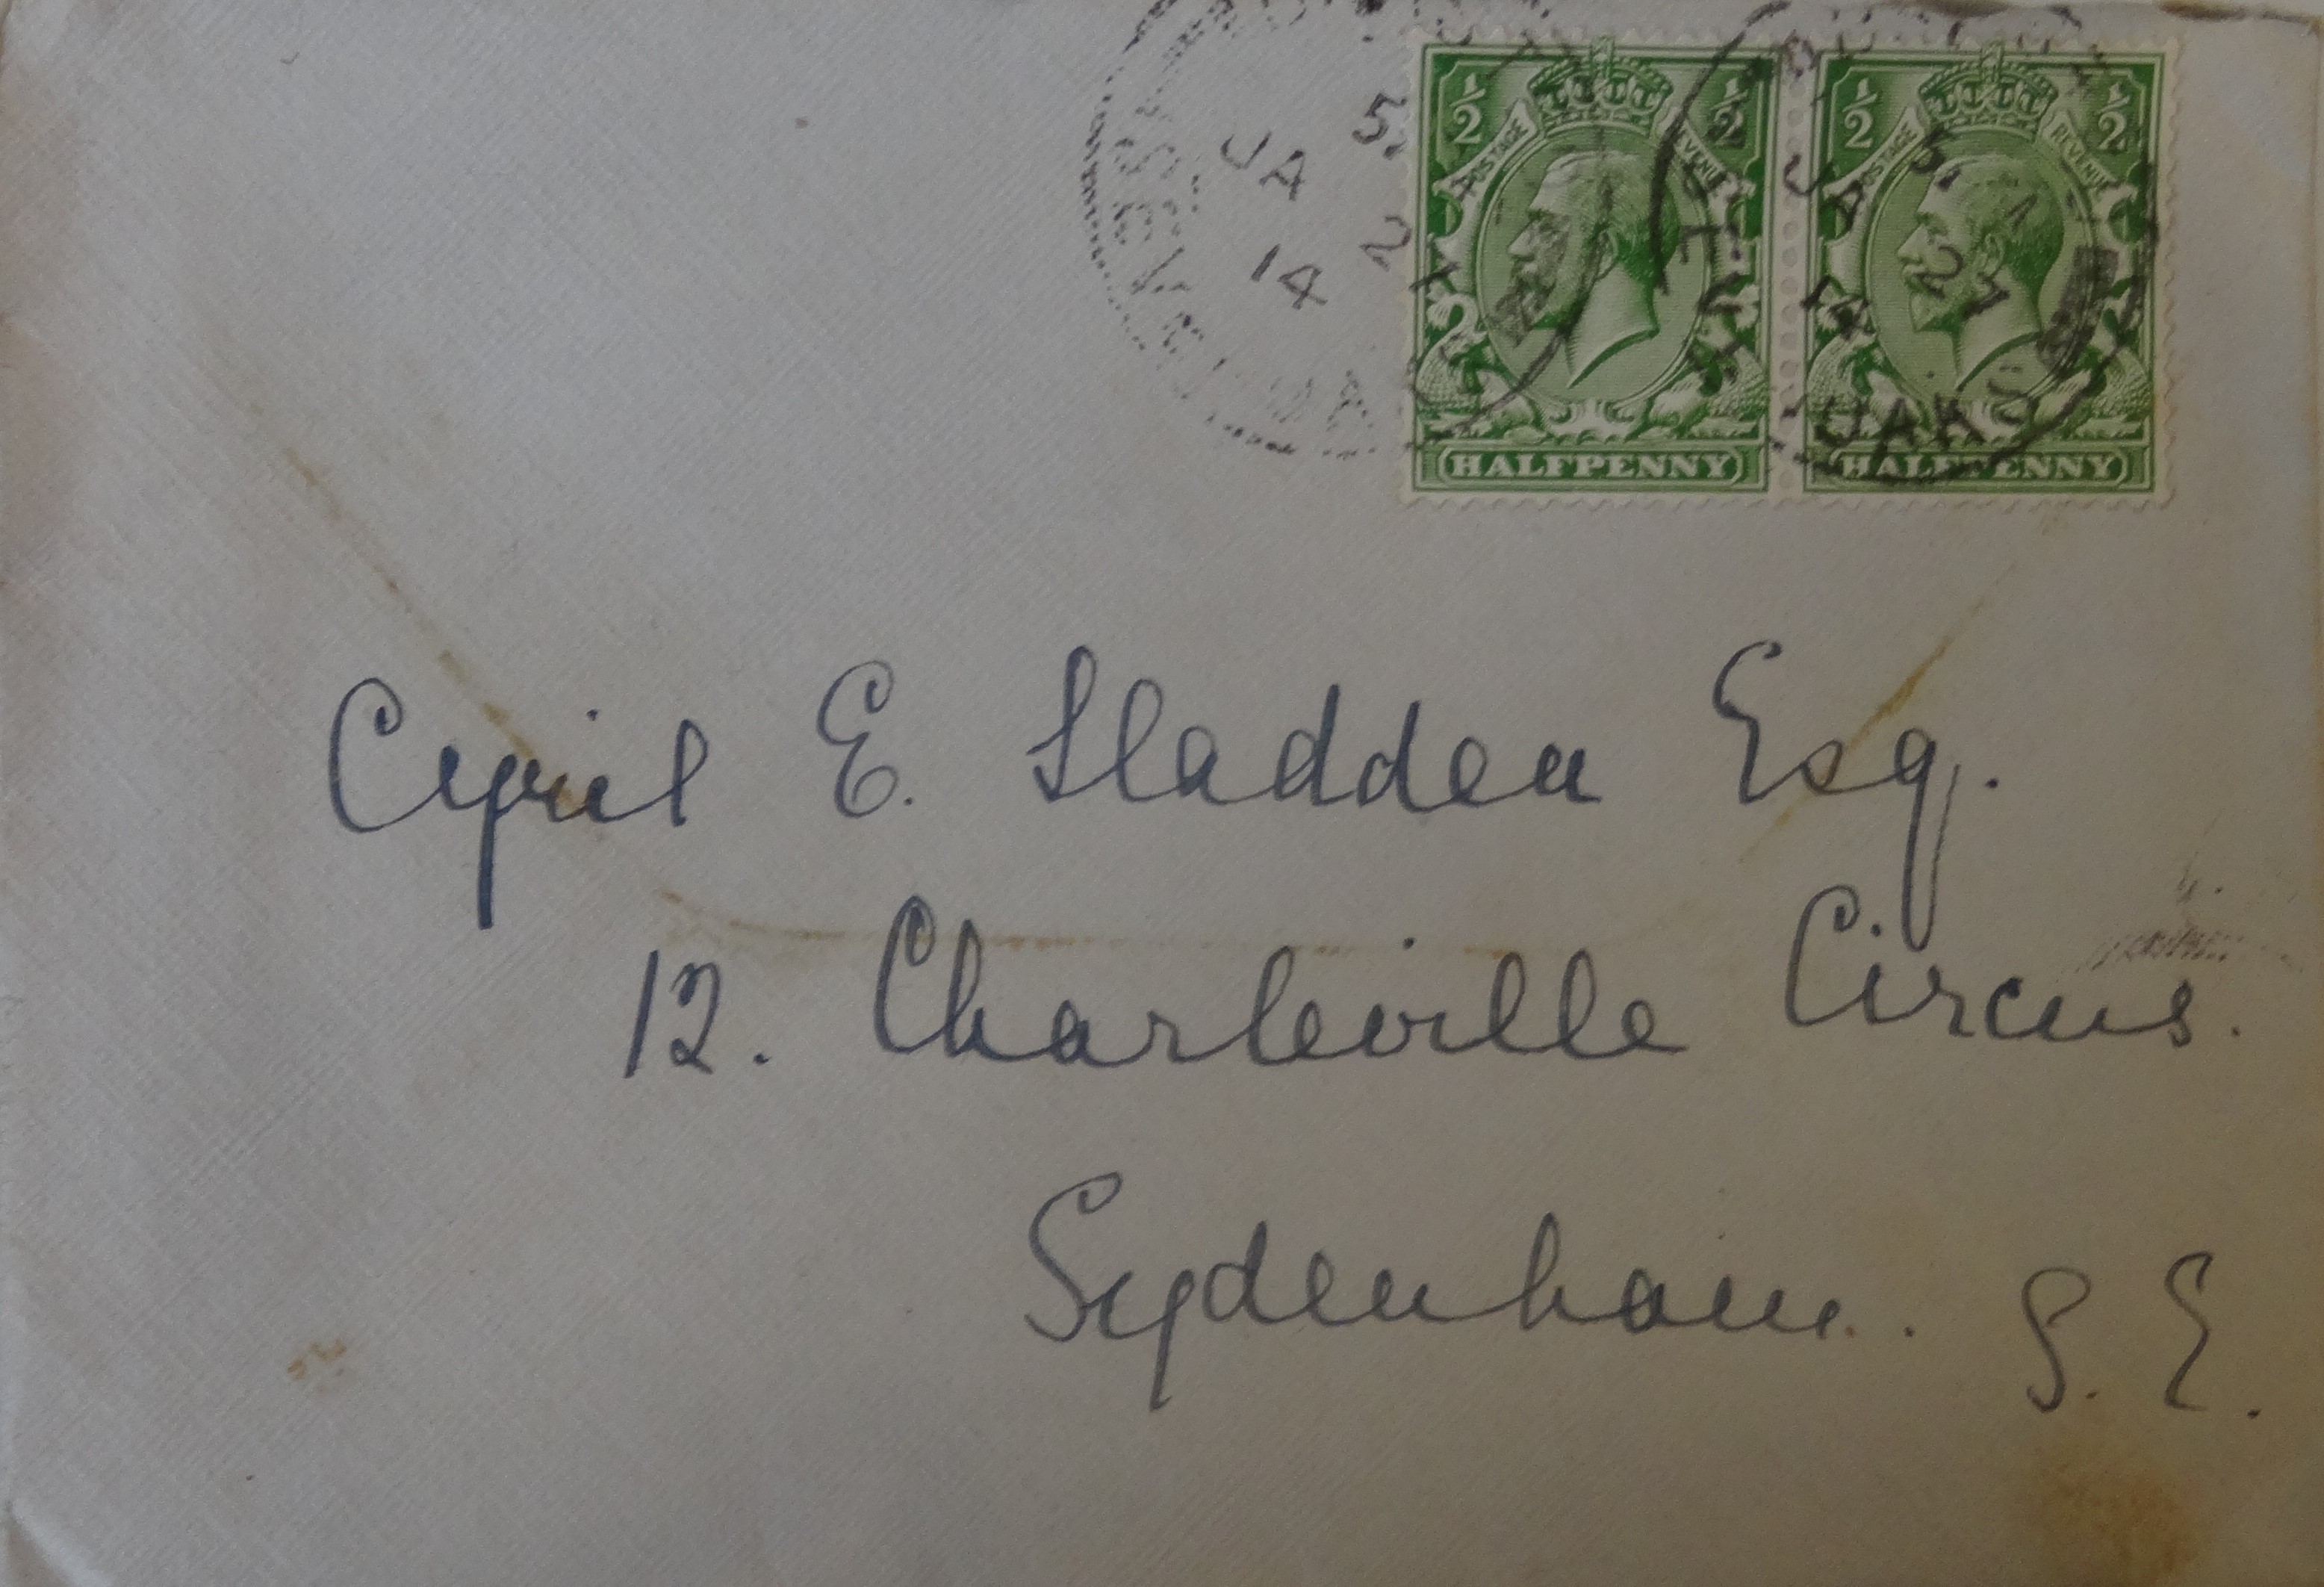 5.
JA 2
14
½ ½ ½ ½
POSTAGE REVENUE POSTAGE REVENUE
5.
JA 27
14
HALFPENNY HALFPENNY
Cyril E. Sladden Esq.
12. Charleville Circus.
Sydenham. S. E.